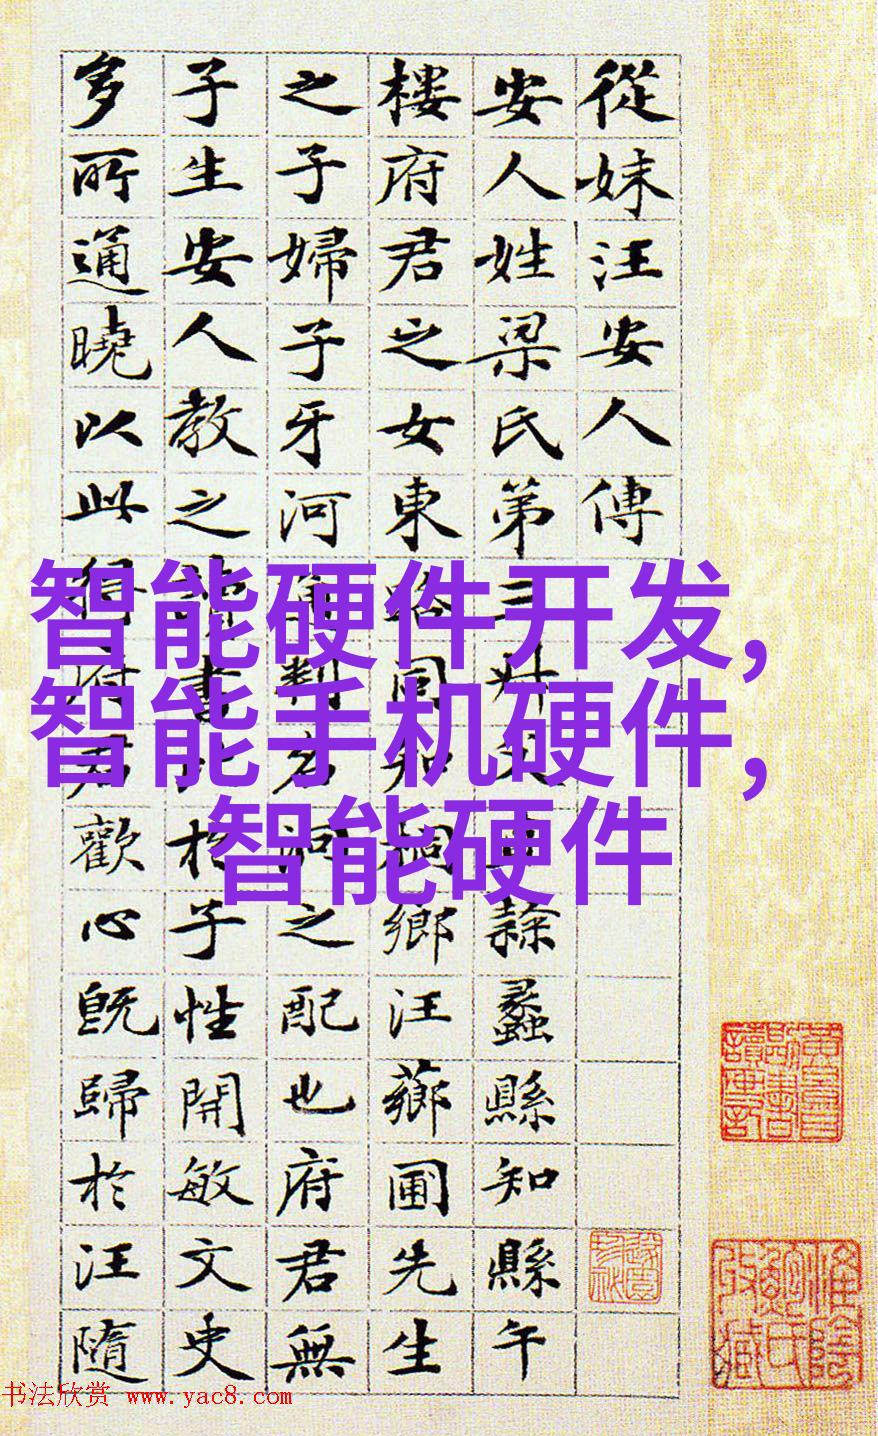 從妹汪安人傳
安人姓梁氏第三 父 隸蠡縣知縣午
樓府君之女東路同知桐鄉汪薌圃先生
之子婦子牙河 判 之配也府君無
子生安人教之讀書 於子性開敏文史
多所通曉以此得府君歡心既歸於汪隨
智能硬件开发,
智能手机硬件,
智能硬件
书法欣赏 www.yac8.com